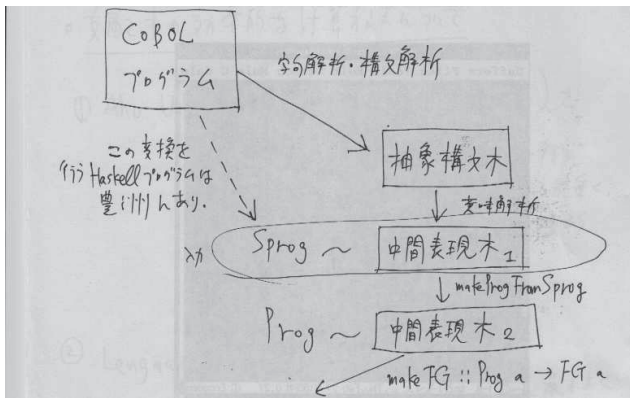 COBOL
プログラム
字句解析・構文解析
この変換を
行う Haskellプログラムは
抽象構文木
意味解析
入力
Sprog ~ 中間表現木1
makeProgFromSprog
Prog ~ 中間表現木2
makeFG :: Prog a → FG a